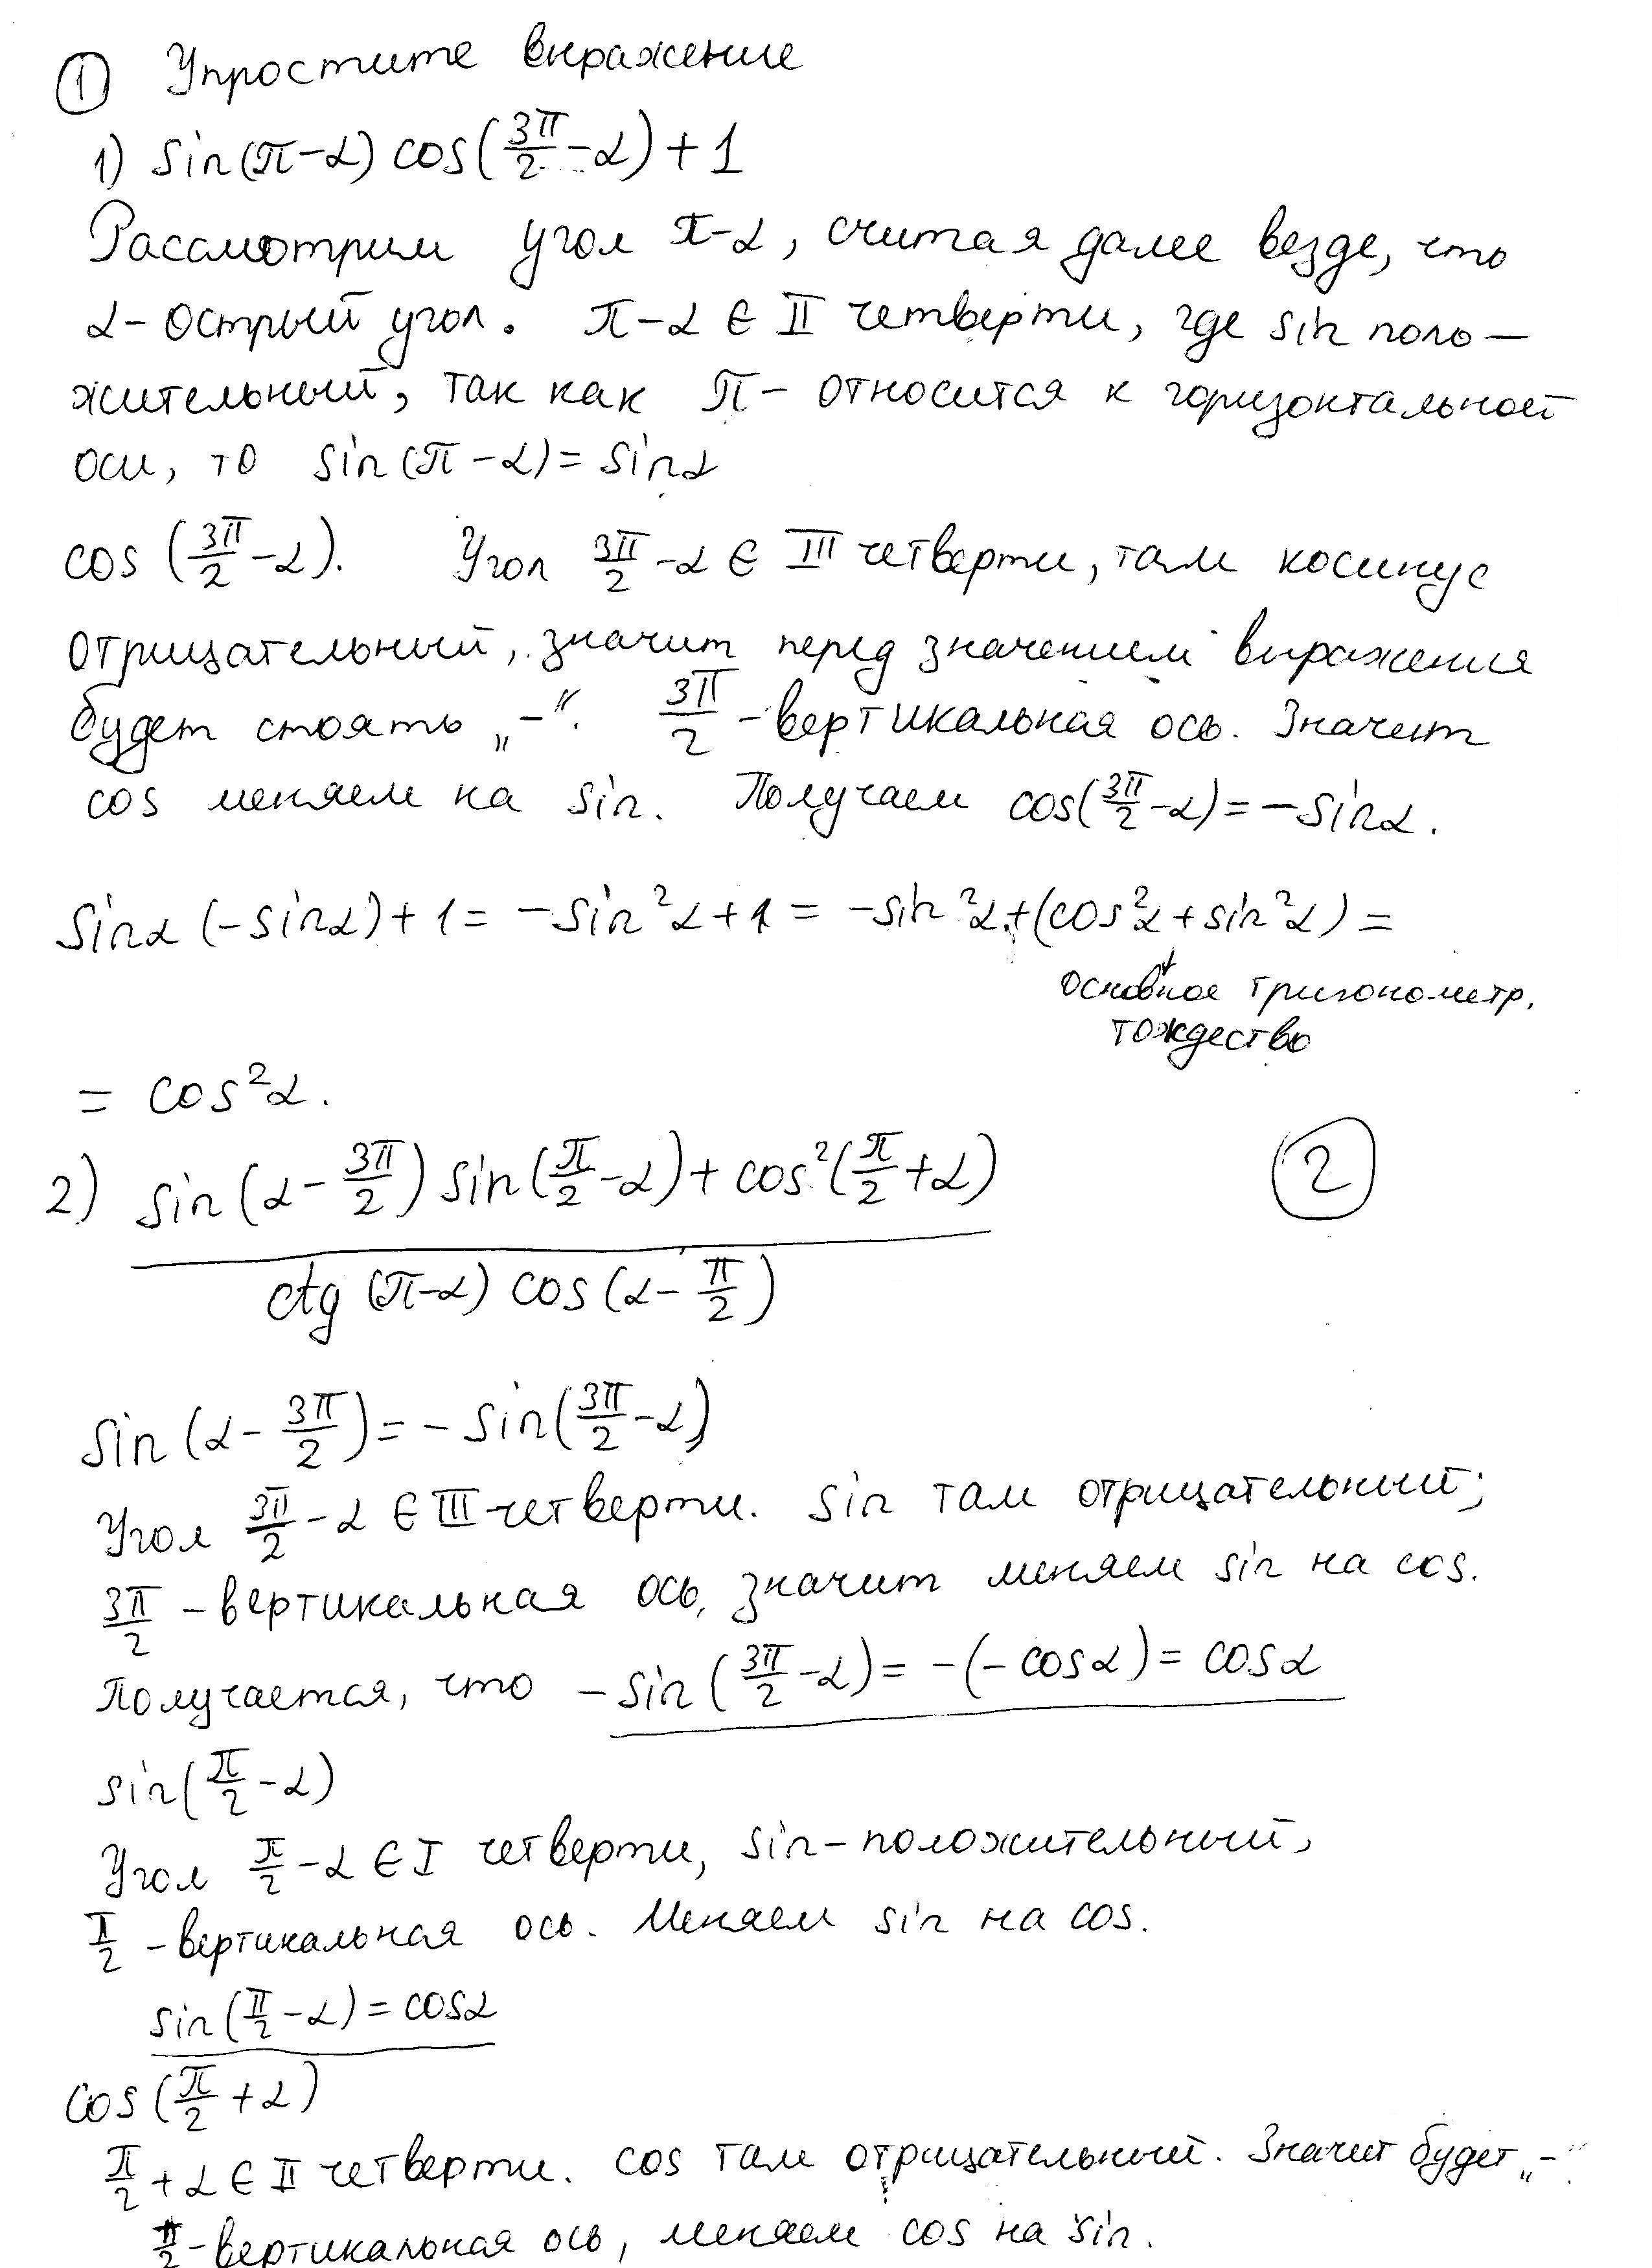 ① Упростите выражение
1) sin(π-α) cos(3π/2 -α)+1
Рассмотрим угол π-α, считая далее везде, что
α- острый угол. π-α ∈ II четверти, где sin поло-
жительный, так как π- относится к горизонтальной
оси, то sin(π-α)= sinα
cos (3π/2 -α). Угол 3π/2 -α ∈ III четверти, там косинус
отрицательный, значит перед значением выражения
будет стоять „-“. 3π/2 -вертикальная ось. Значит
cos меняем на sin. Получаем cos(3π/2 -α)=-sinα.
sinα (-sinα)+1= -sin²α+1= -sin²α+(cos²α+sin²α)=
основное тригонометр.
тождество
= cos²α.
2) (sin(α- 3π/2) sin(π/2 -α)+cos²(π/2 +α)) / (ctg(π-α) cos(α- π/2))
②
sin(α- 3π/2)=-sin(3π/2 -α)
Угол 3π/2 -α ∈ III четверти. sin там отрицательный;
3π/2 -вертикальная ось, значит меняем sin на cos.
Получается, что -sin(3π/2 -α)= -(-cosα)= cosα
sin(π/2 -α)
Угол π/2 -α ∈ I четверти, sin-положительный,
π/2 -вертикальная ось. Меняем sin на cos.
sin(π/2 -α)=cosα
cos(π/2 +α)
π/2 +α ∈ II четверти. cos там отрицательный. Значит будет „-“
π/2 -вертикальная ось, меняем cos на sin.